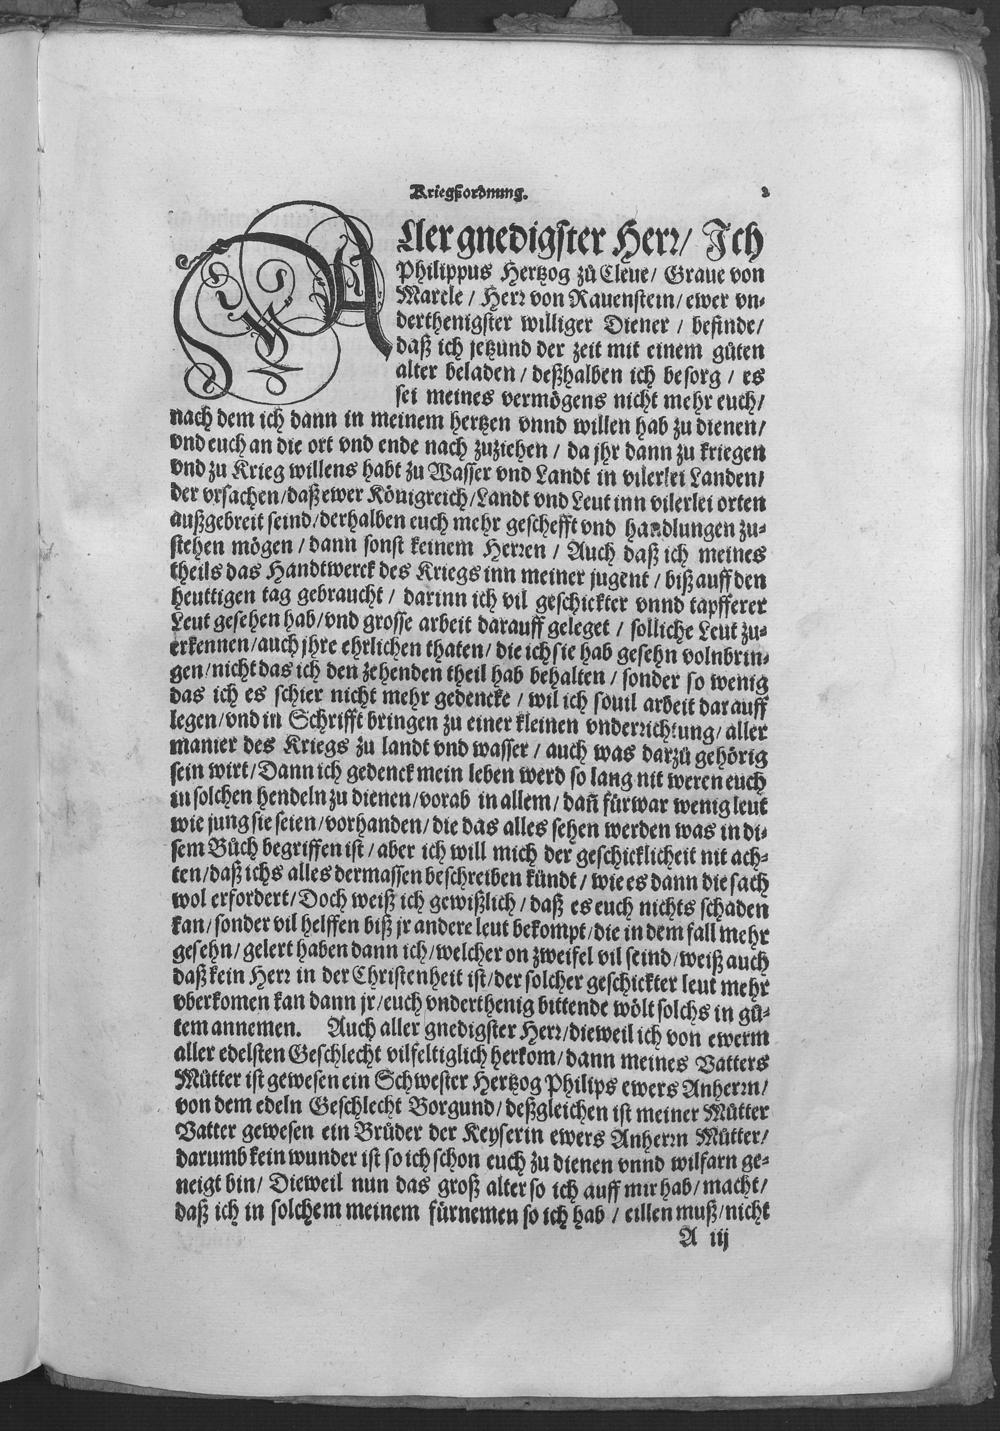 Kriegßordnung. 3
ALler gnedigster Herr/ Ich
Philippus Hertzog zů Cleue/ Graue von
Marcle/ Herr von Rauenstein/ ewer vn-
derthenigster williger Diener/ befinde/
daß ich jetzund der zeit mit einem gůten
alter beladen/ deßhalben ich besorg/ es
sei meines vermögens nicht mehr euch/
nach dem ich dann in meinem hertzen vnnd willen hab zu dienen/
vnd euch an die ort vnd ende nach zuziehen/ da jhr dann zu kriegen
vnd zu Krieg willens habt zu Wasser vnd Landt in vilerlei Landen/
der vrsachen/ daß ewer Königreich/ Landt vnd Leut inn vilerlei orten
außgebreit seind/ derhalben euch mehr geschefft vnd handlungen zu-
stehen mögen/ dann sonst keinem Herren/ Auch daß ich meines
theils das Handtwerck des Kriegs inn meiner jugent/ biß auff den
heuttigen tag gebraucht/ darinn ich vil geschickter vnnd tapfferer
Leut gesehen hab/ vnd grosse arbeit darauff geleget/ solliche Leut zu-
erkennen/ auch jhre ehrlichen thaten/ die ich sie hab gesehn volnbrin-
gen/ nicht das ich den zehenden theil hab behalten/ sonder so wenig
das ich es schier nicht mehr gedencke/ wil ich souil arbeit darauff
legen/ vnd in Schrifft bringen zu einer kleinen vnderrichtung/ aller
manier des Kriegs zu landt vnd wasser/ auch was darzů gehörig
sein wirt/ Dann ich gedenck mein leben werd so lang nit weren euch
in solchen hendeln zu dienen/ vorab in allem/ dañ fürwar wenig leut
wie jung sie seien/ vorhanden/ die das alles sehen werden was in di-
sem Bůch begriffen ist/ aber ich will mich der geschicklicheit nit ach-
ten/ daß ichs alles dermassen beschreiben kündt/ wie es dann die sach
wol erfordert/ Doch weiß ich gewißlich/ daß es euch nichts schaden
kan/ sonder vil helffen biß jr andere leut bekompt/ die in dem fall mehr
gesehn/ gelert haben dann ich/ welcher on zweifel vil seind/ weiß auch
daß kein Herr in der Christenheit ist/ der solcher geschickter leut mehr
vberkomen kan dann jr/ euch vnderthenig bittende wölt solchs in gů-
tem annemen. Auch aller gnedigster Herr/ dieweil ich von ewerm
aller edelsten Geschlecht vilfeltiglich herkom/ dann meines Vatters
Můtter ist gewesen ein Schwester Hertzog Philips ewers Anherrn/
von dem edeln Geschlecht Borgund/ deßgleichen ist meiner Můtter
Vatter gewesen ein Brůder der Keyserin ewers Anherrn Můtter/
darumb kein wunder ist so ich schon euch zu dienen vnnd wilfarn ge-
neigt bin/ Dieweil nun das groß alter so ich auff mir hab/ macht/
daß ich in solchem meinem fürnemen so ich hab/ eillen muß/ nicht
A iij